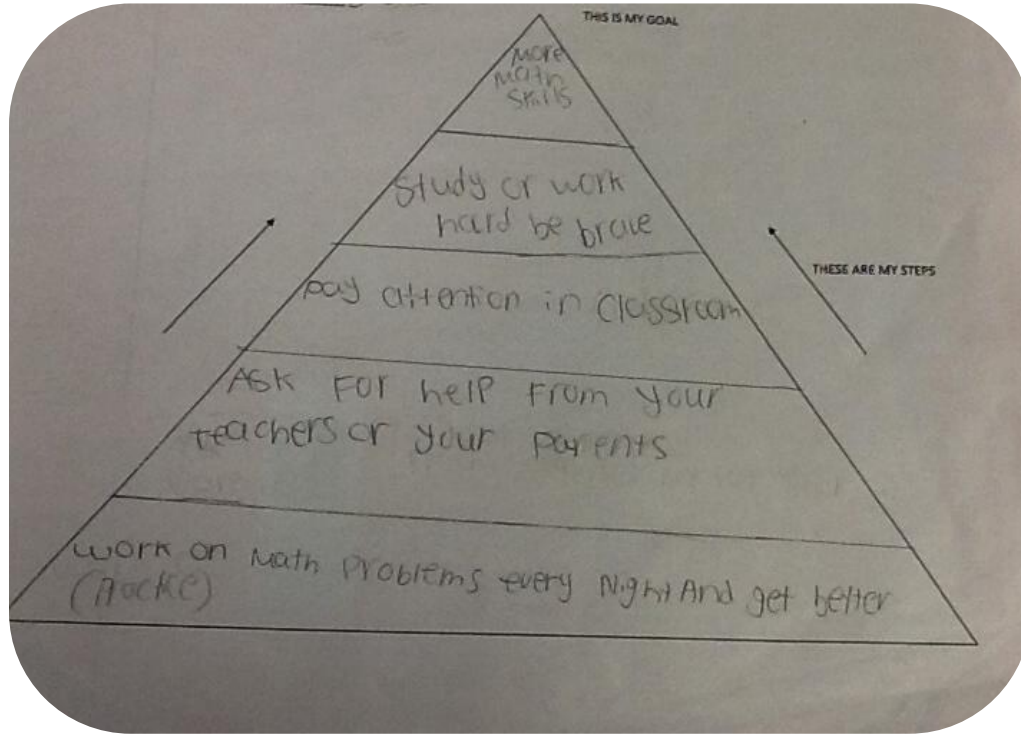 THIS IS MY GOAL
More
Math
Skills
Study or work
hard be brave
THESE ARE MY STEPS
pay attention in classroom
Ask For help From your
teachers or your parents
work on Math Problems every Night And get better